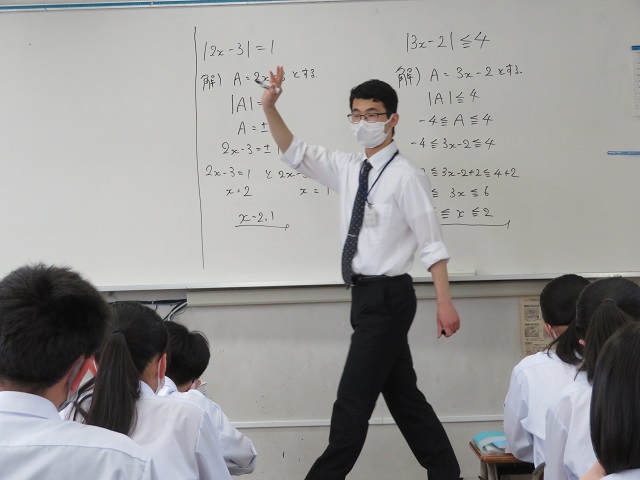 |2x-3|=1
解) A=2x-3とする.
|A|=
A=±
2x-3=±
2x-3=1 と 2x-3
x=2 x=1
x=2.1
|3x-2|≦4
解) A=3x-2とする.
|A|≦4
-4≦A≦4
-4≦3x-2≦4
≦3x-2+2≦4+2
≦3x≦6
≦x≦2